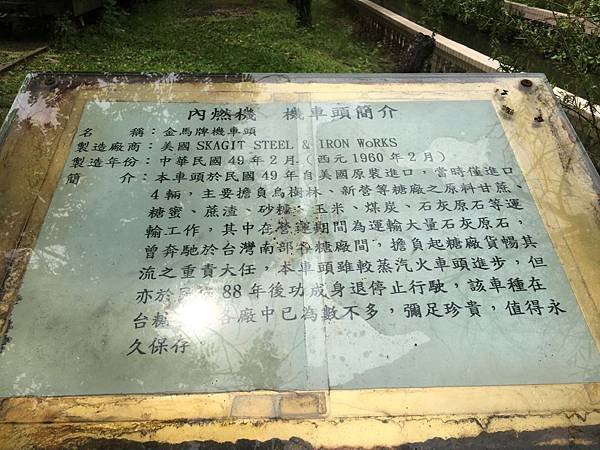 內燃機 機車頭簡介
名 稱：金馬牌機車頭
製造廠商：美國 SKAGIT STEEL & IRON WoRKS
製造年份：中華民國 49 年 2 月（西元 1960 年 2 月）
簡 介：本車頭於民國 49 年自美國原裝進口，當時僅進口
4 輛，主要擔負烏樹林、新營等糖廠之原料甘蔗、
糖蜜、蔗渣、砂糖、玉米、煤炭、石灰原石等運
輸工作，其中在營運期間為運輸大量石灰原石，
曾奔馳於台灣南部各糖廠間，擔負起糖廠貨暢其
流之重責大任，本車頭雖較蒸汽火車頭進步，但
亦於民國 88 年後功成身退停止行駛，該車種在
台糖 各廠中已為數不多，彌足珍貴，值得永
久保存